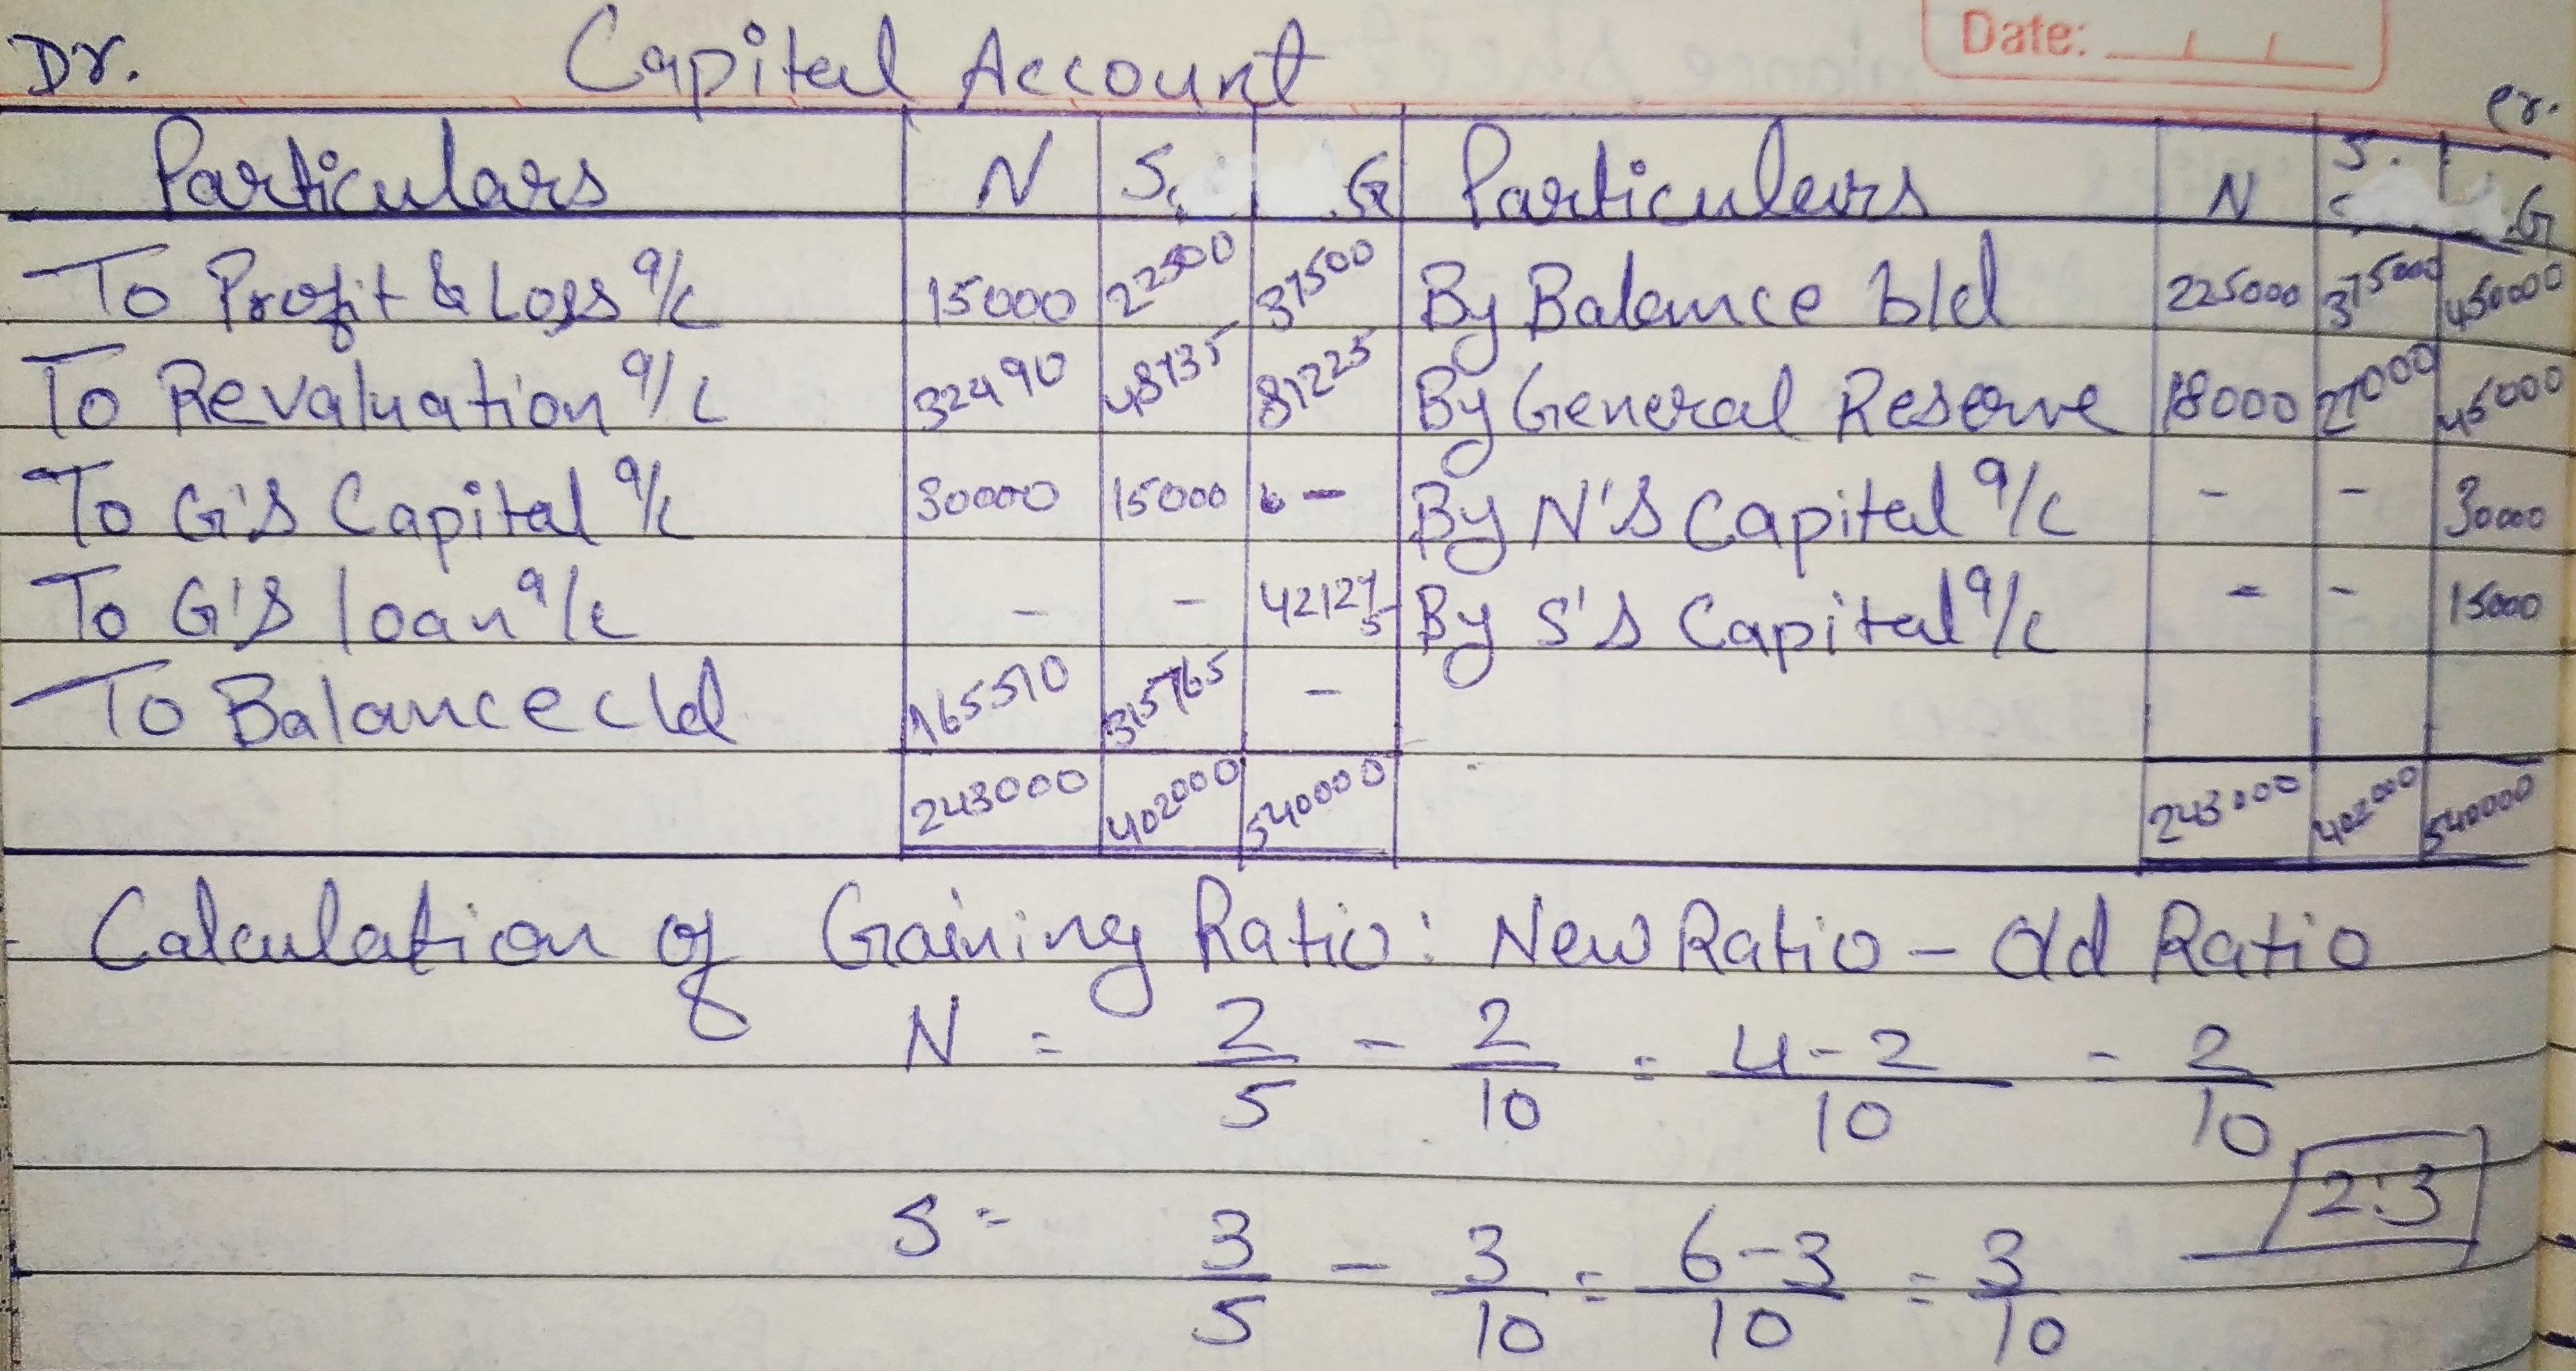 Date: / /
Dr. Capital Account Cr.
Particulars N S. G Particulars N S. G
To Profit & Loss a/c 15000 22500 37500 By Balance b/d 225000 375000 450000
To Revaluation a/c 32490 48735 81225 By General Reserve 18000 27000 45000
To G's Capital a/c 30000 15000 - By N's Capital a/c - - 30000
To G's loan a/c - - 421275 By S's Capital a/c - - 15000
To Balance c/d 165510 315765 -
243000 402000 540000 243000 402000 540000
Calculation of Gaining Ratio: New Ratio - Old Ratio
N = 2/5 - 2/10 = 4-2/10 = 2/10
2:3
S = 3/5 - 3/10 = 6-3/10 = 3/10